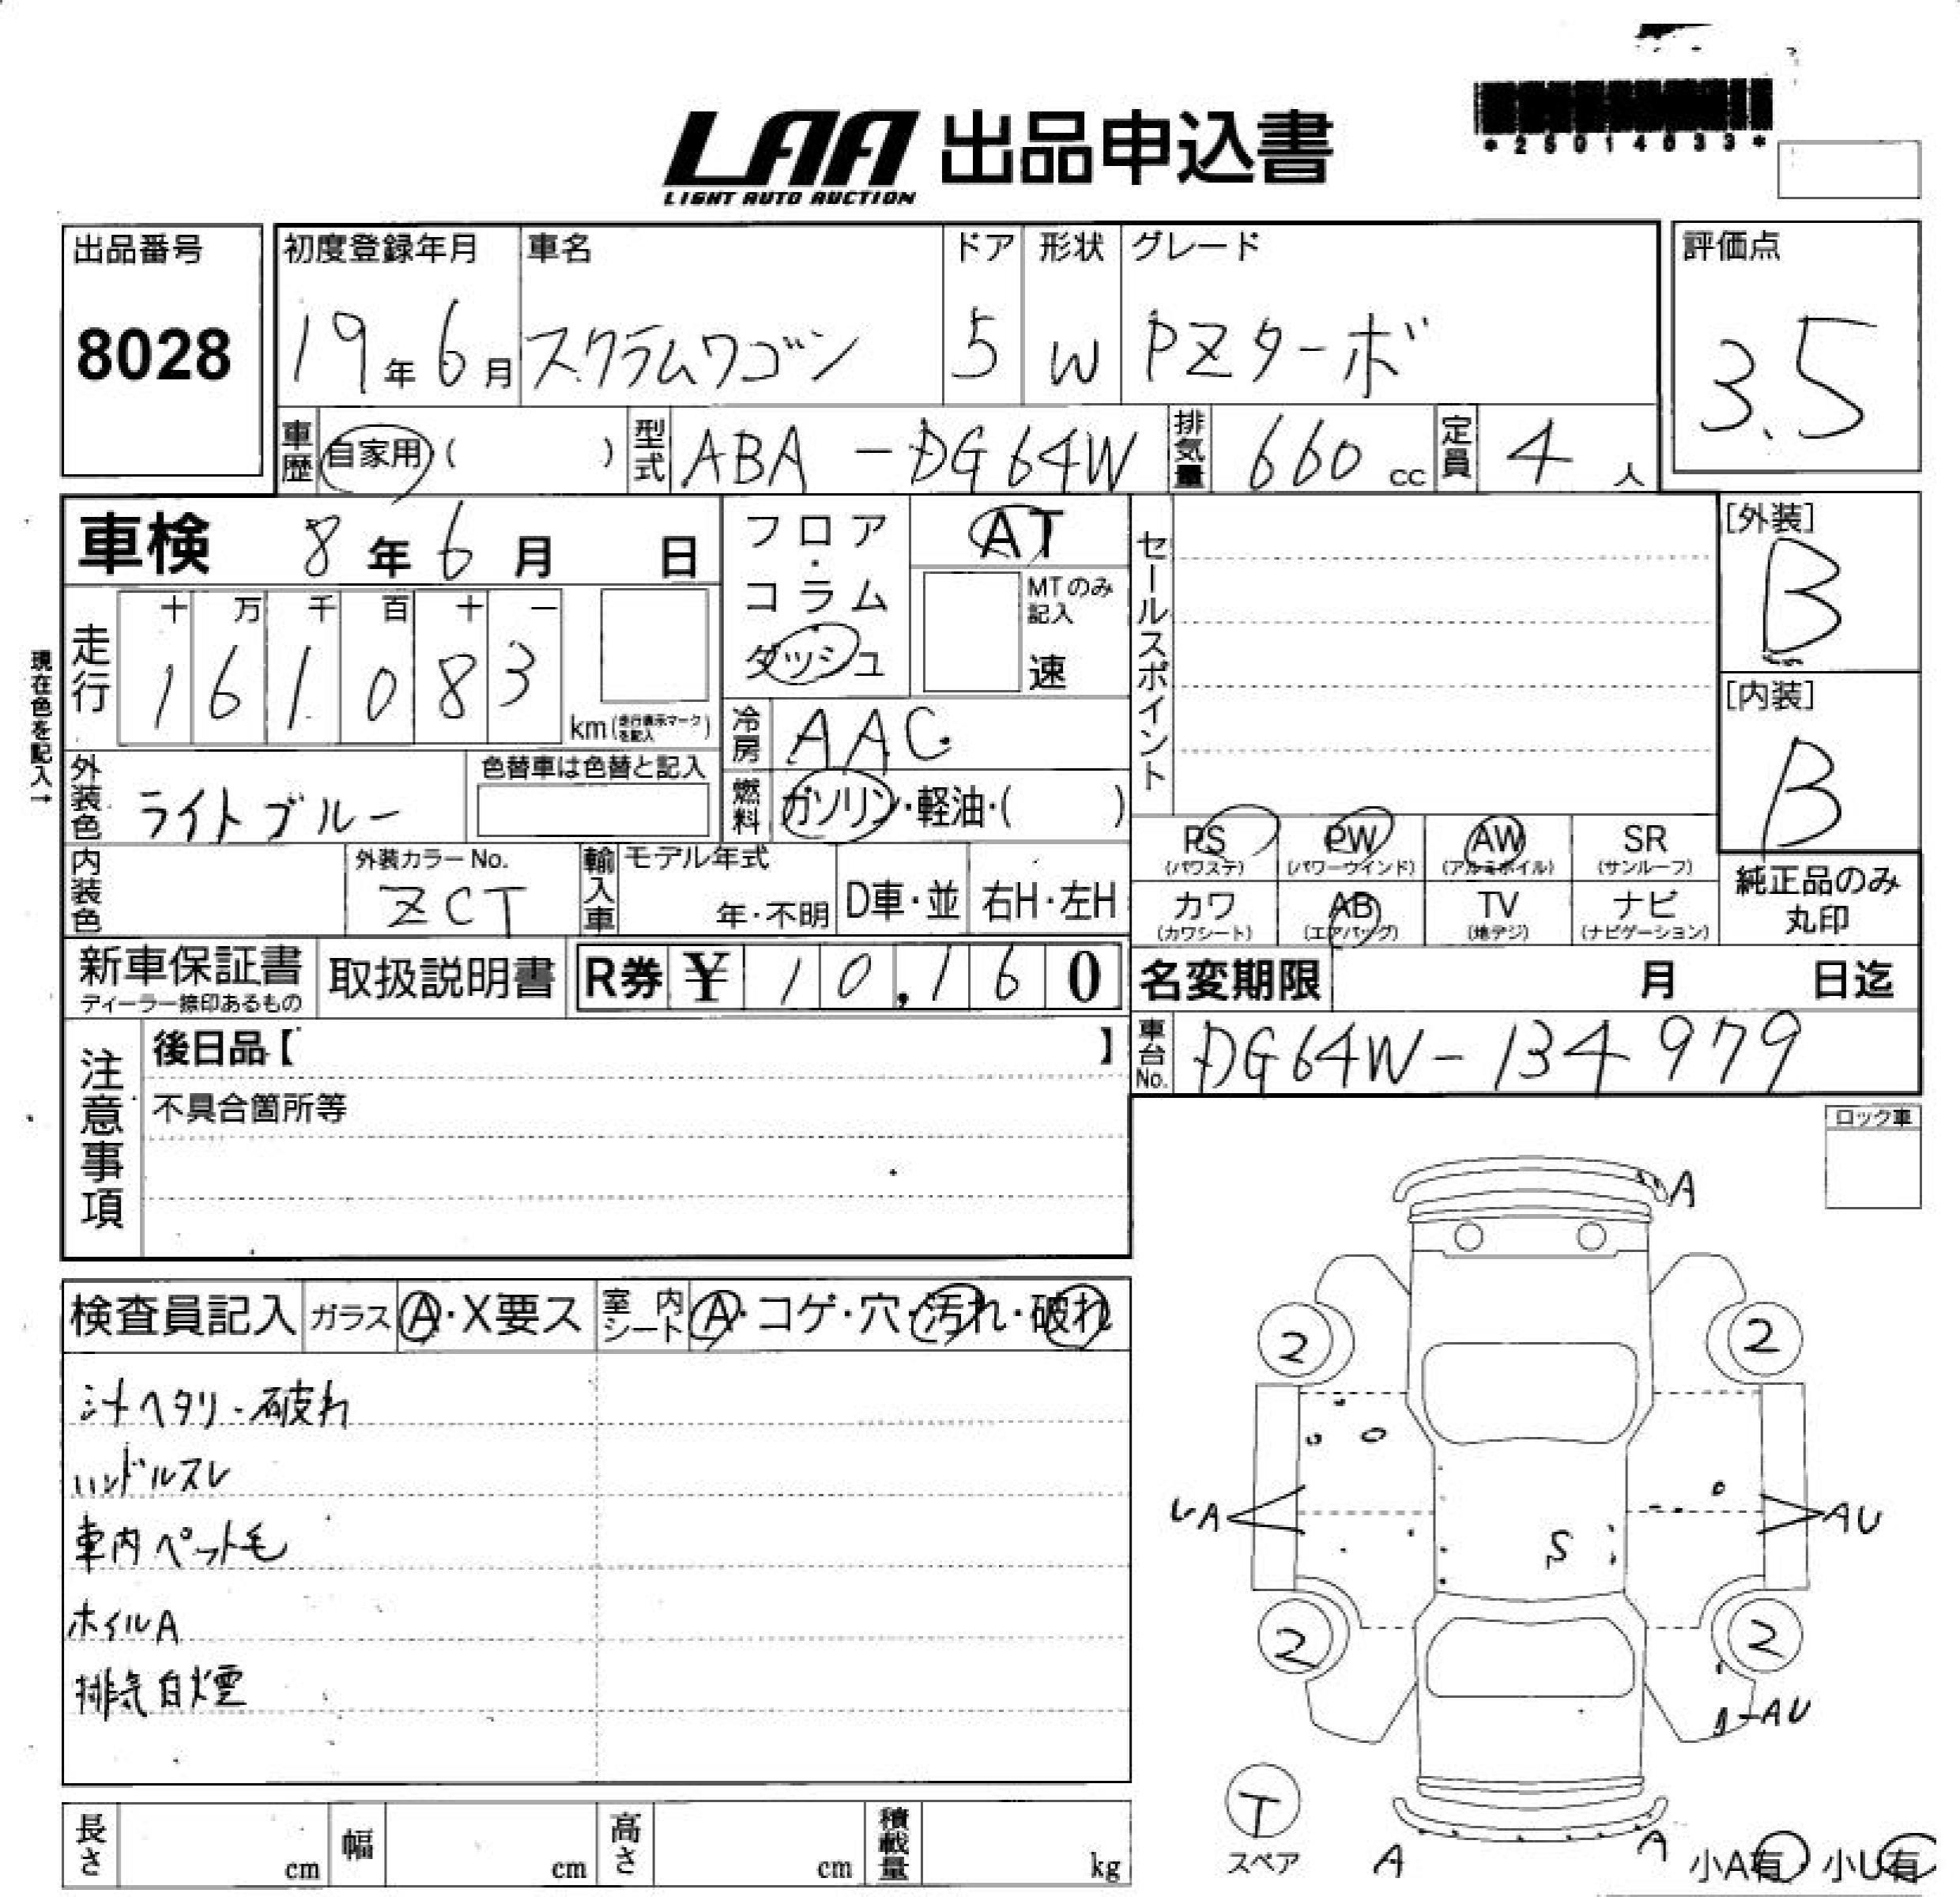 LAA 出品申込書
LIGHT AUTO AUCTION
出品番号
8028
初度登録年月
19年6月
車名
スクラムワゴン
ドア
5
形状
W
グレード
PZターボ
評価点
3.5
車歴 自家用( )
型式 ABA-DG64W
排気量 660 cc
定員 4 人
車検 8年6月 日
フロア・コラム
ダッシュ
AT
MTのみ記入
速
セールスポイント
[外装]
B
[内装]
B
現在色を記入→
走行
十 万 千 百 十 一
1 6 1 0 8 3
km(走行表示マークを記入)
冷房 AAC
外装色 ライトブルー
色替車は色替と記入
燃料 ガソリン・軽油・( )
PS (パワステ)
PW (パワーウインド)
AW (アルミホイル)
SR (サンルーフ)
カワ (カワシート)
AB (エアバッグ)
TV (地デジ)
ナビ (ナビゲーション)
純正品のみ丸印
内装色
外装カラーNo.
ZCT
輸入車
モデル年式
年・不明
D車・並
右H・左H
新車保証書
ディーラー捺印あるもの
取扱説明書
R券 ¥ 10,160
名変期限 月 日迄
車台No. DG64W-134979
注意事項
後日品【 】
不具合箇所等
ロック車
検査員記入
ガラス A・X要ス
室内シート A・コゲ・穴・汚れ・破れ
シートヘタリ・破れ
ハンドルスレ
車内ペット毛
ホイルA
排気白煙
A
2
2
UA
AU
S
2
2
AU
T
スペア
A
A
小A有 小U有
長さ cm
幅 cm
高さ cm
積載量 kg